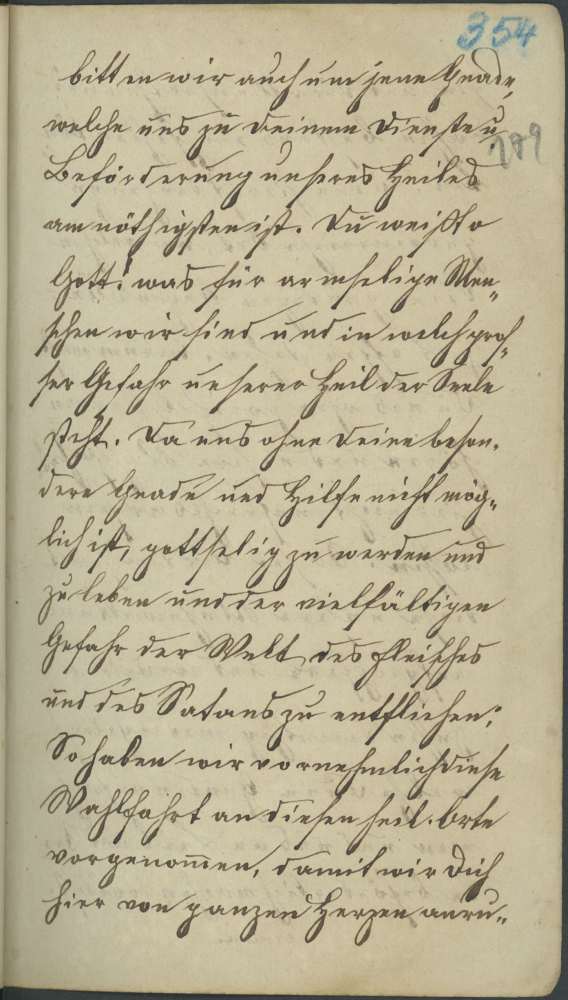 354
189
bitten wir auch um jene Gnade,
welche uns zu Deinem Dienste u
Beförderung unseres Heiles
am nöthigsten ist. Du weißt o
Gott! was für armselige Men„
schen wir sind und in welch gros„
ser Gefahr unserer Heil der Seele
steht. Da uns ohne Deine beson„
dere Gnade und Hilfe nicht mög„
lich ist, gottselig zu werden und
zu leben und der vielfältigen
Gefahr der Welt des Fleisches
und des Satans zu entfliehen;
So haben wir vornehmlich diese
Wahlfahrt an diesen heil. Orte
vorgenom̅en, damit wir Dich
hier von ganzen Herzen anru„